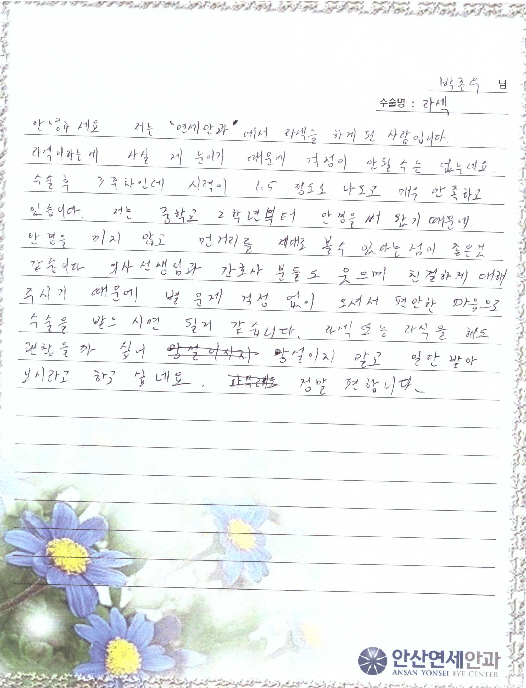 박준수 님
수술명 : 라섹
안녕하세요 저는 "연세안과"에서 라섹을 하게 된 사람입니다.
라섹이라는게 사실 제 눈이기 때문에 걱정이 안될 수는 없네요.
수술 후 3주차인데 시력이 1.5 정도로 나오고 매우 만족하고
있습니다. 저는 중학교 2학년부터 안경을 써 왔기 때문에
안경을 끼지 않고 먼거리를 제대로 볼수 있다는점이 좋은것
같습니다 의사선생님과 간호사 분들도 웃으며 친절하게 대해
주시기 때문에 별 문제 걱정 없이 오셔서 편안한 마음으로
수술을 받으시면 될거 같습니다. 라섹 또는 라식을 해도
괜찮을까 싶어 망설이지 말고 일단 받아
보시라고 하고 싶네요. 정말 편합니다.
안산연세안과
ANSAN YONSEI EYE CENTER